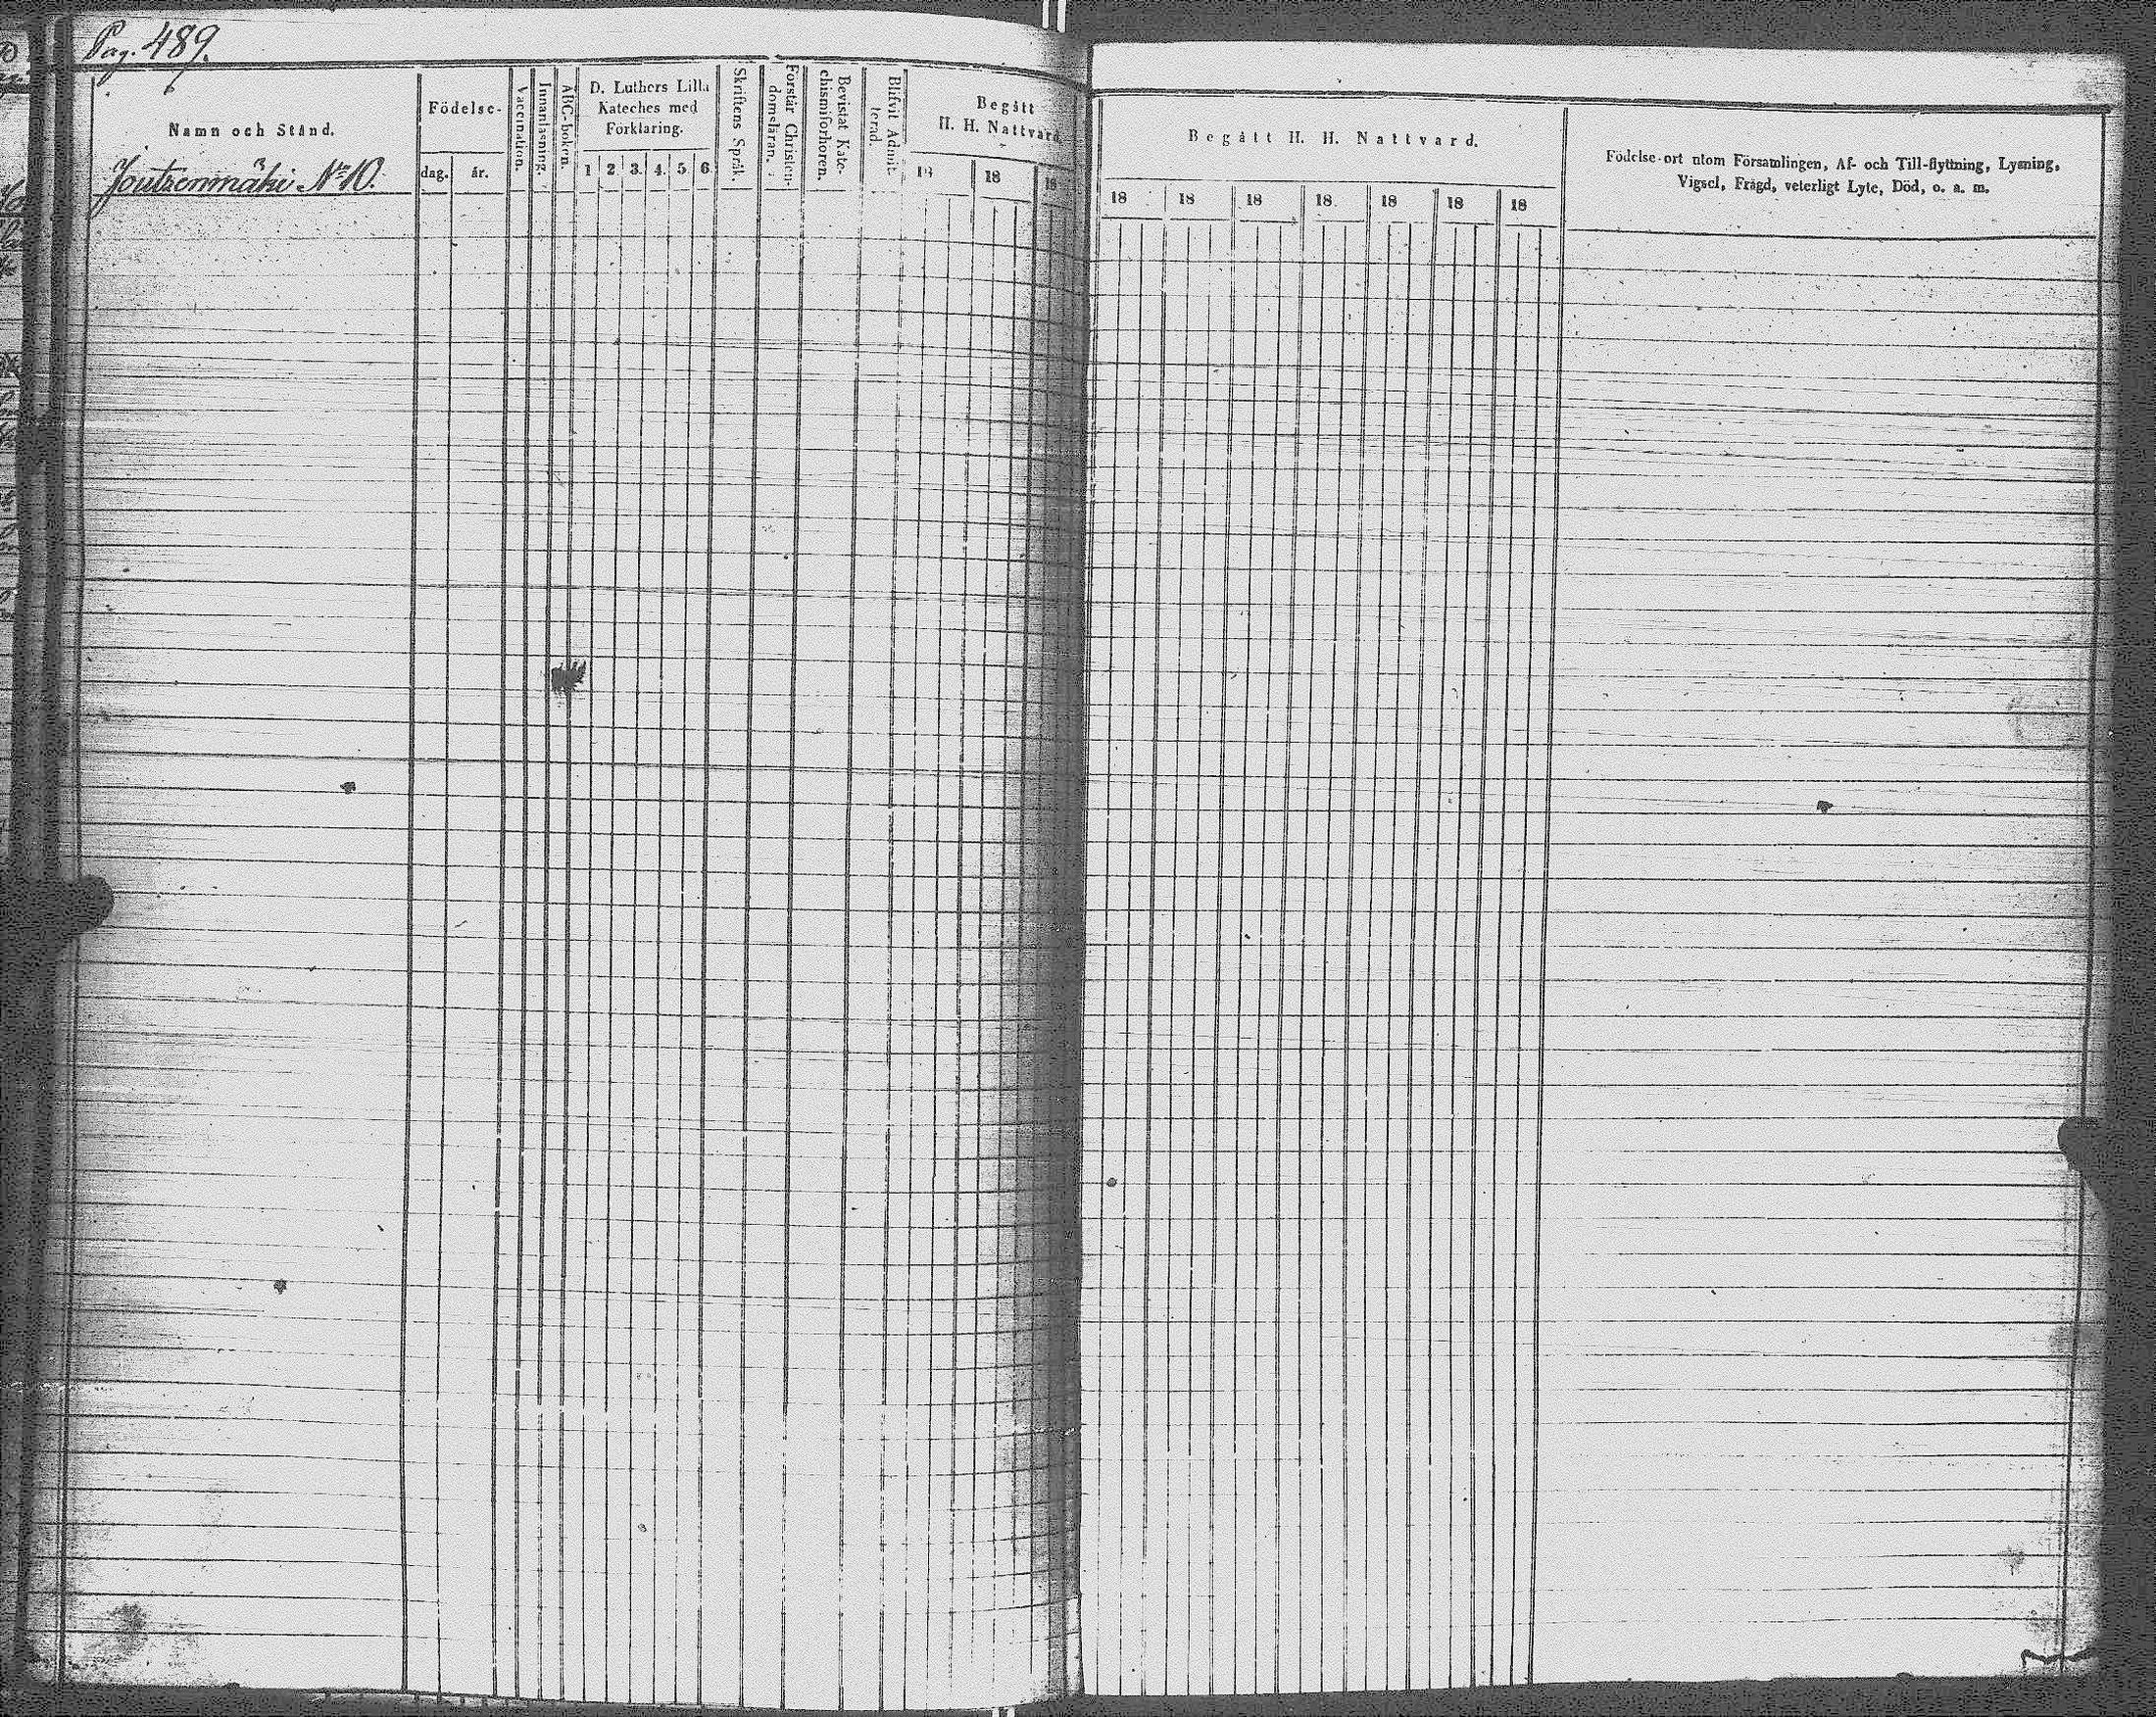 Pag. 489.
Namn och Stånd.
Joutzenmäki No 10.
Födelse-
dag. år.
Vaccination.
Innanläsning.
ABC-boken.
D. Luthers Lilla
Kateches med
Förklaring.
1 2 3. 4. 5 6
Skriftens Språk.
Förstår Christen-
domsläran.
Bevistat Kate-
chismiförhören.
Blifvit Admit-
terad.
Begått
H. H. Nattvard
18 18 18
Begått H. H. Nattvard.
18 18 18 18 18 18 18
Födelse-ort utom Församlingen, Af- och Till-flyttning, Lysning,
Vigsel, Frägd, veterligt Lyte, Död, o. a. m.